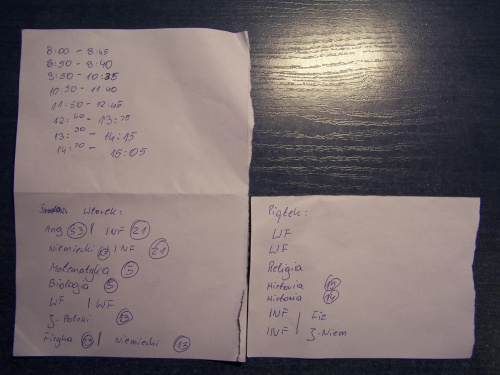 8:00 - 8:45
8:50 - 8:40
9:50 - 10:35
10:50 - 11:40
11:50 - 12:45
12:40 - 13:
13:30 - 14:15
14:20 - 15:05
Wtorek:
Ang 53 | INF 21
Niemiecki | INF 21
Matematyka 5
Biologia 5
WF | WF
J-Polski 13
Fizyka 13 | Niemiecki 13
Piątek:
WF
WF
Religia
Historia
Historia 14
INF | Fiz
INF | J-Niem